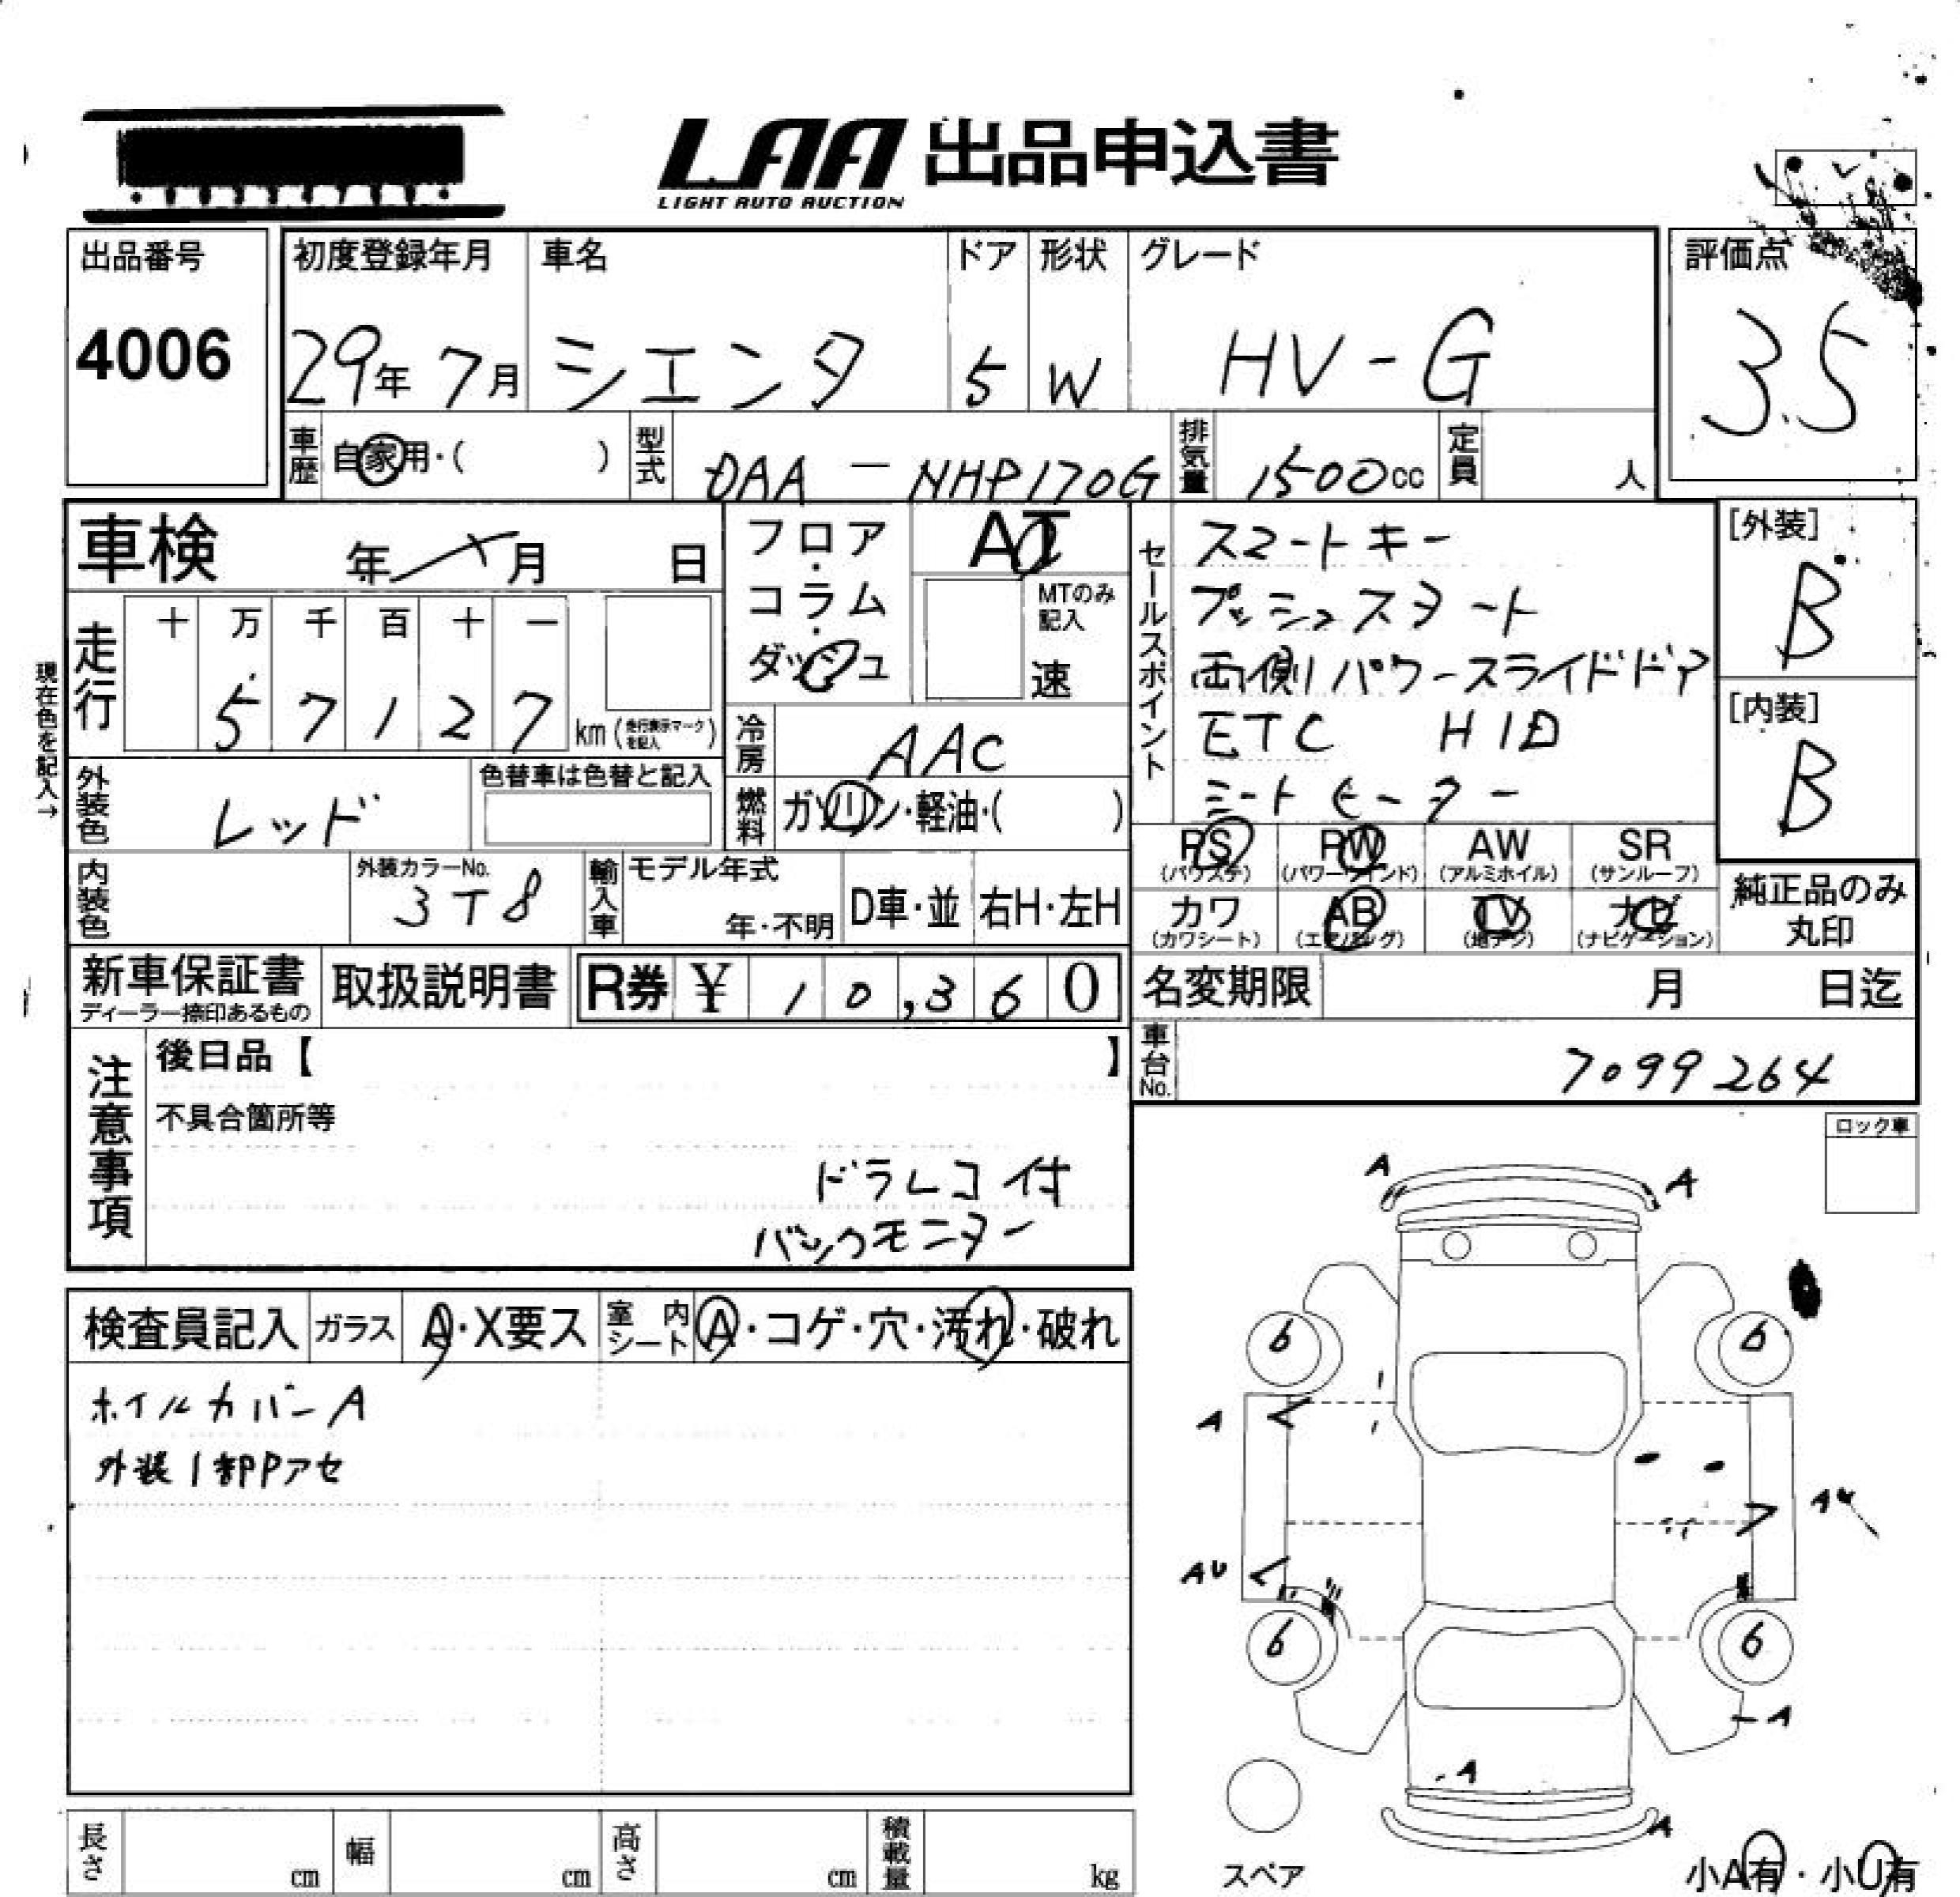 LAA 出品申込書
LIGHT AUTO AUCTION
出品番号
4006
初度登録年月 車名 ドア 形状 グレード
29年 7月 シエンタ 5 W HV-G
評価点
3.5
車歴 自家用・( ) 型式 DAA-NHP170G 排気量 1500cc 定員 人
車検 年 月 日
フロア・コラム・ダッシュ
AT
MTのみ記入
速
セールスポイント
スマートキー
プッシュスタート
両側パワースライドドア
ETC HID
シートヒーター
[外装]
B
[内装]
B
現在色を記入→
走行 十 万 千 百 十 一
5 7 1 2 7 km (走行表示マークを記入)
冷房 AAC
外装色 レッド 色替車は色替と記入
燃料 ガソリン・軽油・( )
PS (パワステ) PW (パワーウインド) AW (アルミホイル) SR (サンルーフ)
カワ (カワシート) AB (エアバッグ) TV (地デジ) ナビ (ナビゲーション)
純正品のみ丸印
内装色 外装カラーNo. 3T8 輸入車 モデル年式 年・不明 D車・並 右H・左H
新車保証書 ディーラー捺印あるもの 取扱説明書 R券 ¥ 10,360
名変期限 月 日迄
車台No. 7099264
注意事項
後日品【 】
不具合箇所等
ドラレコ付
バックモニター
ロック車
検査員記入 ガラス A・X要ス 室内シート A・コゲ・穴・汚れ・破れ
ホイルカバーA
外装1部Pアセ
A A
6 6
A
AU
AU
6 6
A
A
A
スペア
小A有・小U有
長さ cm 幅 cm 高さ cm 積載量 kg